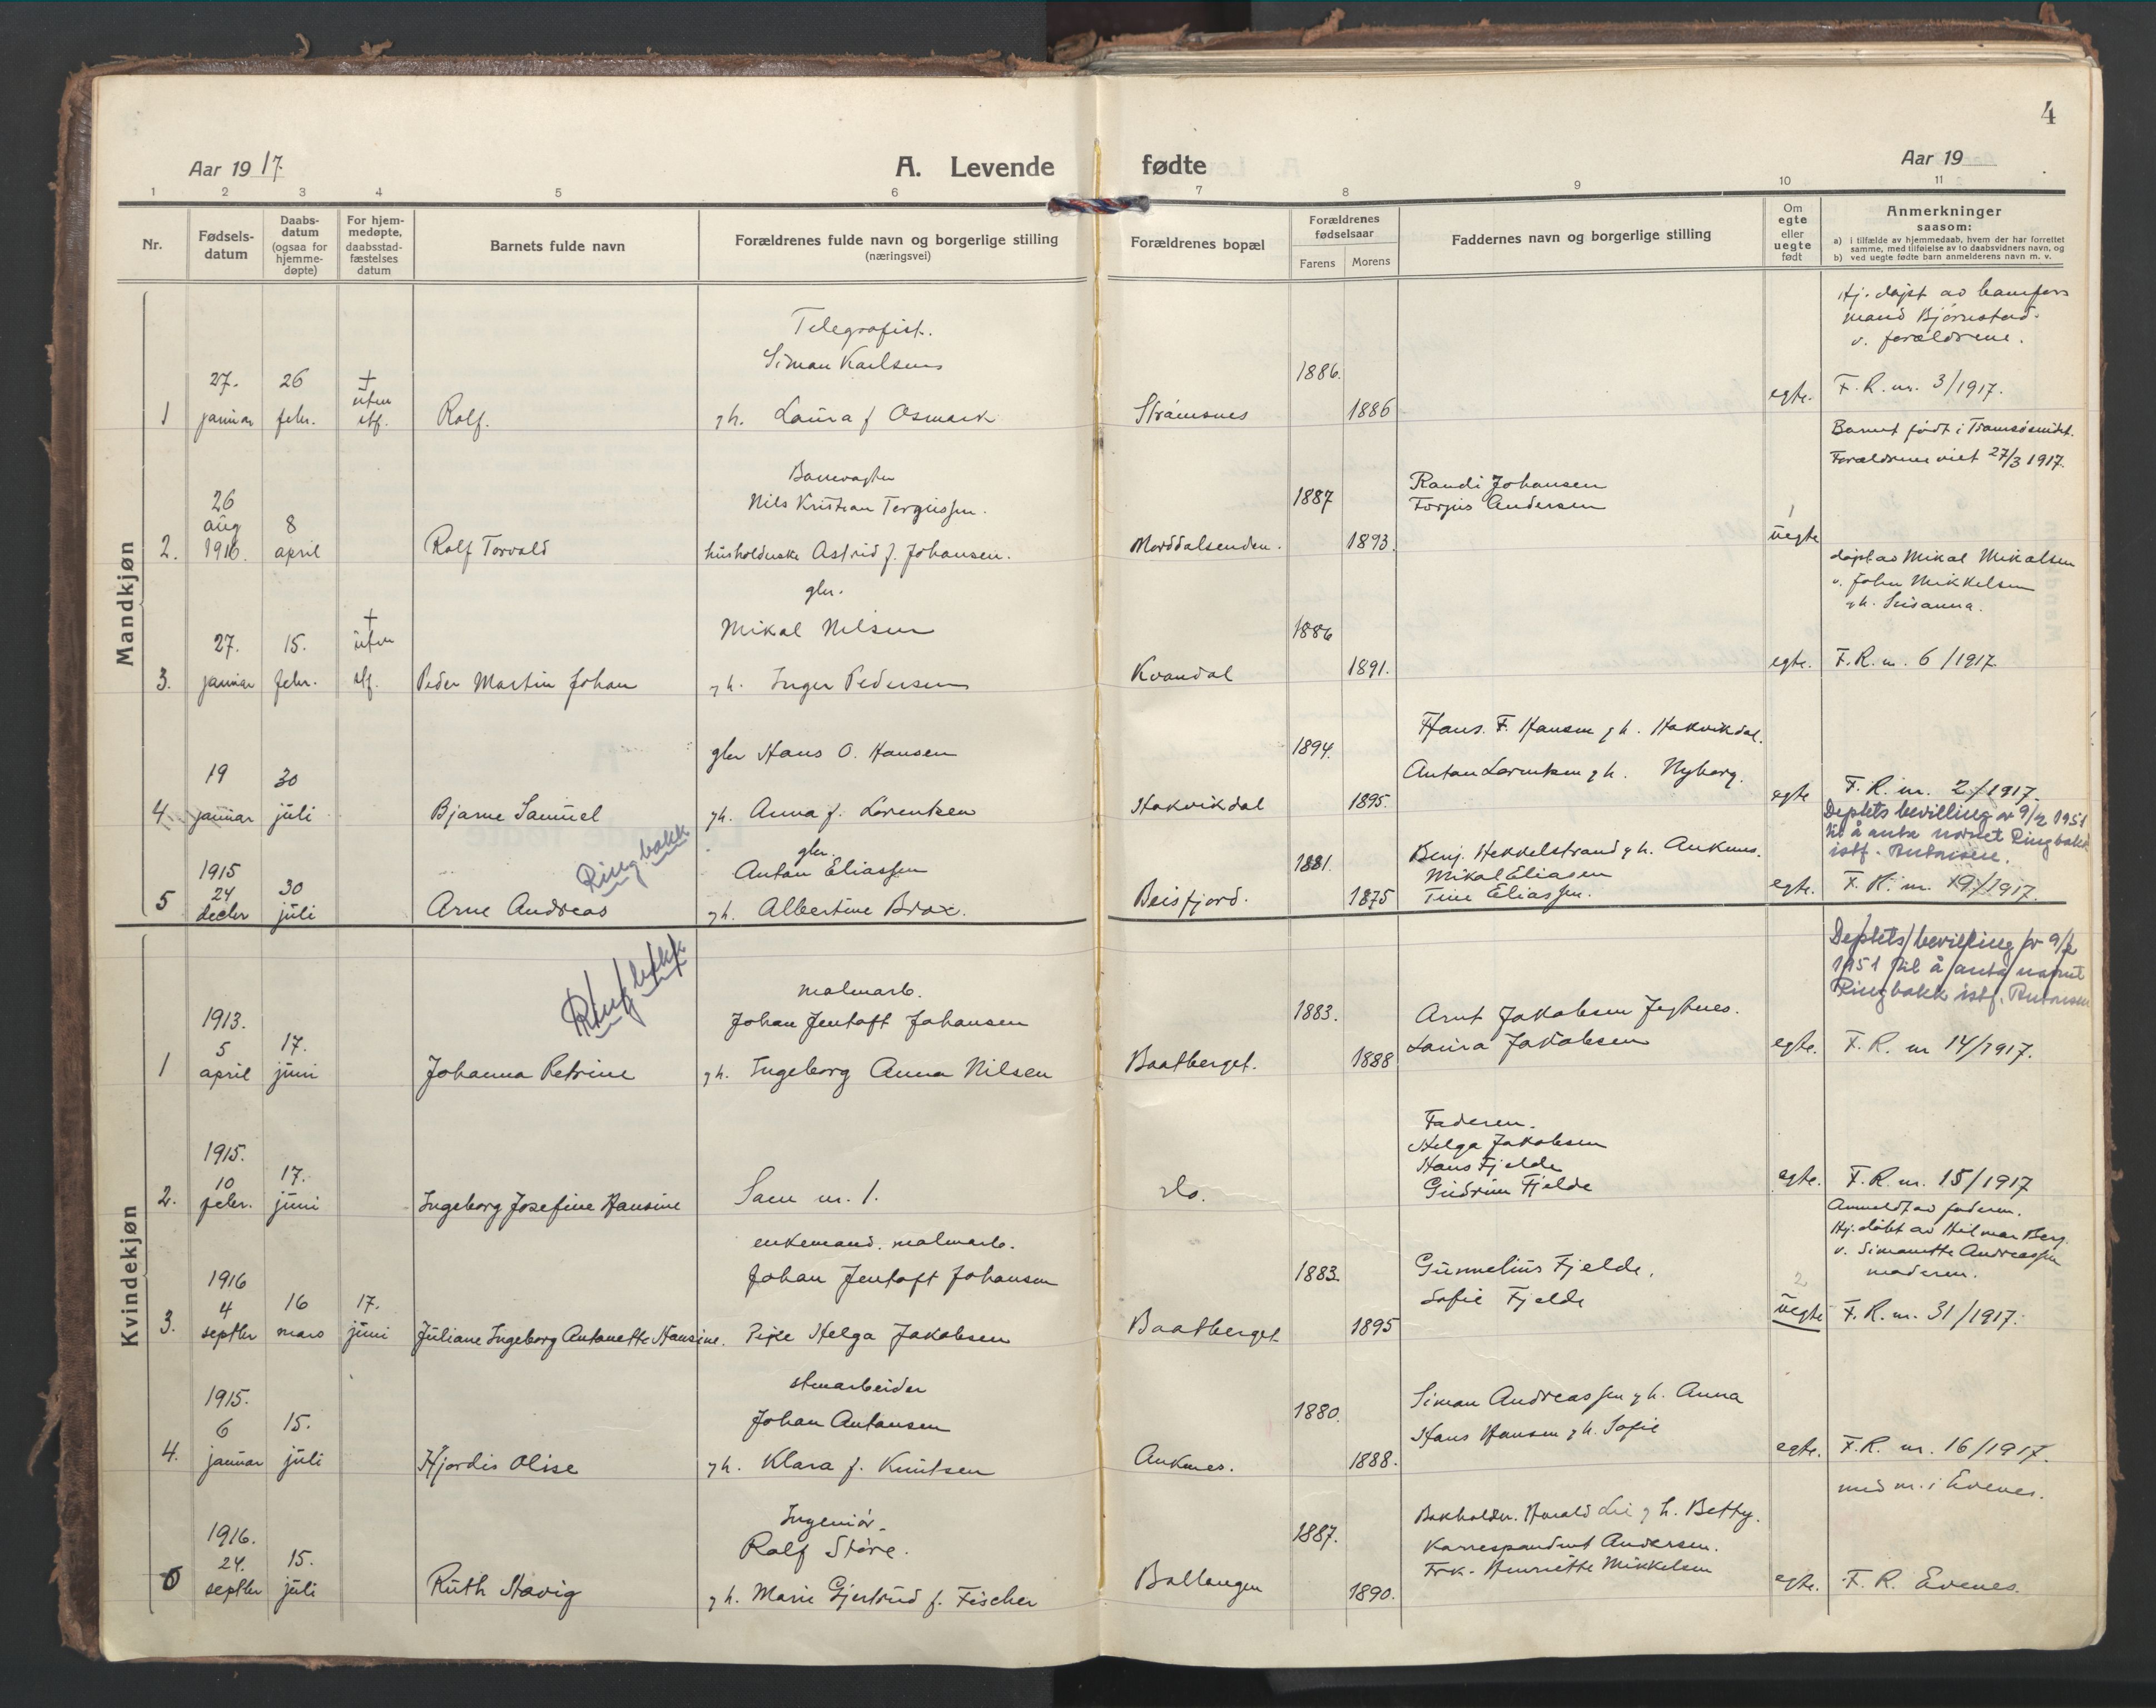 4
Aar 1917.
A. Levende fødte
Aar 19
1 2 3 4 5 6 7 8 9 10 11
Nr.
Fødsels-
datum
Daabs-
datum
(ogsaa for
hjemme-
døpte)
For hjem-
medøpte,
daabsstad-
fæstelses
datum
Barnets fulde navn
Forældrenes fulde navn og borgerlige stilling
(næringsvei)
Forældrenes bopæl
Forældrenes
fødselsaar
Farens Morens
Faddernes navn og borgerlige stilling
Om
egte
eller
uegte
født
Anmerkninger
saasom:
a) i tilfælde av hjemmedaab, hvem der har forrettet
samme, med tilføielse av to daabsvidners navn, og
b) ved uegte fødte barn anmelderens navn m. v.
Mandkjøn
Hj. døpt av
mand Bjørnstad
v. forældrene.
Telegrafist.
Simon Karlsen
27. 26 † 1886.
uten
1 januar febr. stf. Rolf. g h. Laura f Osmark Strømsnes 1886 egte. F. R. nr. 3/1917.
Barnet født i
Forældrene viet 27/3 1917.
Banevogter
Nils Kristian Tergiussen. 1887 Randi Johansen
Torgius Andersen
26
aug 8 1
2. 1916. april Rolf Torvald husholderske Astrid f. Johansen. 1893. uegte
døpt av Mikal Mikalsen
v. Johan Mikkelsen
g h. Susanna.
gbr.
Mikal Nilsen 1886
27. 15. † uten
3. januar febr. stf. Peder Martin Johan g h. Inger Pedersen Kvandal 1891. egte. F. R. nr. 6/1917.
gbr Hans O. Hansen 1894. Hans. F. Hansen g h. Hakvikdal.
Anton Lorentsen g h. Nyborg.
19 30
4 januar juli Bjarne Samuel g h. Anna f. Lorentzen Hakvikdal 1895. egte F. R. nr. 2/1917.
Deptets bevilling av 9/2 1951
til å anta navnet Ringbakk
istf. Antonsen.
Ringbakk
gbr.
Anton Eliassen 1881. Benj. Hekkelstrand g h. Ankenes.
Mikal Eliasen
Tine Eliassen.
1915
24 30
5 decbr juli Arne Andreas g h. Albertine Brox. Beisfjord. 1875 egte. F. R. nr. 19/1917.
Kvindekjøn
Deptets bevilling av 9/2
1951 til å anta navnet
Ringbakk istf. Antonsen
Ringbakk
malmarb.
Johan Jentoft Johansen 1883. Arnt Jakobsen
Laura Jakobsen
1913.
5 17.
1 april juni Johanna Petrine g h. Ingeborg Anna Nilsen Baatberget. 1888 egte. F. R. nr 14/1917.
Faderen.
Helga Jakobsen
Hans Fjelde
Gudrun Fjelde
1915.
10 17.
2. febr. juni Ingeborg Josefine Hansine Som nr. 1. do. egte. F. R. nr. 15/1917
Anmeldt av faderen.
Hj. døbt av Hilmar Berg.
v. Simonette Andreassen
moderen.
enkemand. malmarb.
Johan Jentoft Johansen 1883. Gunnelius Fjelde.
Sofie Fjelde
1916
4 16 17. 2
3. septbr mars juni Juliane Ingeborg Antonette Hansine. Pike Helga Jakobsen Baatberget 1895 uegte F. R. nr. 31/1917.
stenarbeider
Johan Antonsen 1880. Simon Andreassen g h. Anna
Hans Hansen g h. Sofie
1915.
6 15.
4. januar juli Hjordis Olise g h. Klara f. Knutsen Ankenes. 1888. egte. F. R. nr. 16/1917.
med nr. i Evenes.
Ingeniør.
Rolf Støre. 1887. Bokholder. Harald Lie g h. Betty.
Korrespondent Andersen.
Frk. Henriette Mikkelsen
1916.
24. 15.
5 septbr juli Ruth Havig g h. Marie Gjertrud f. Fischer Ballangen 1890. egte. F. R. Evenes.